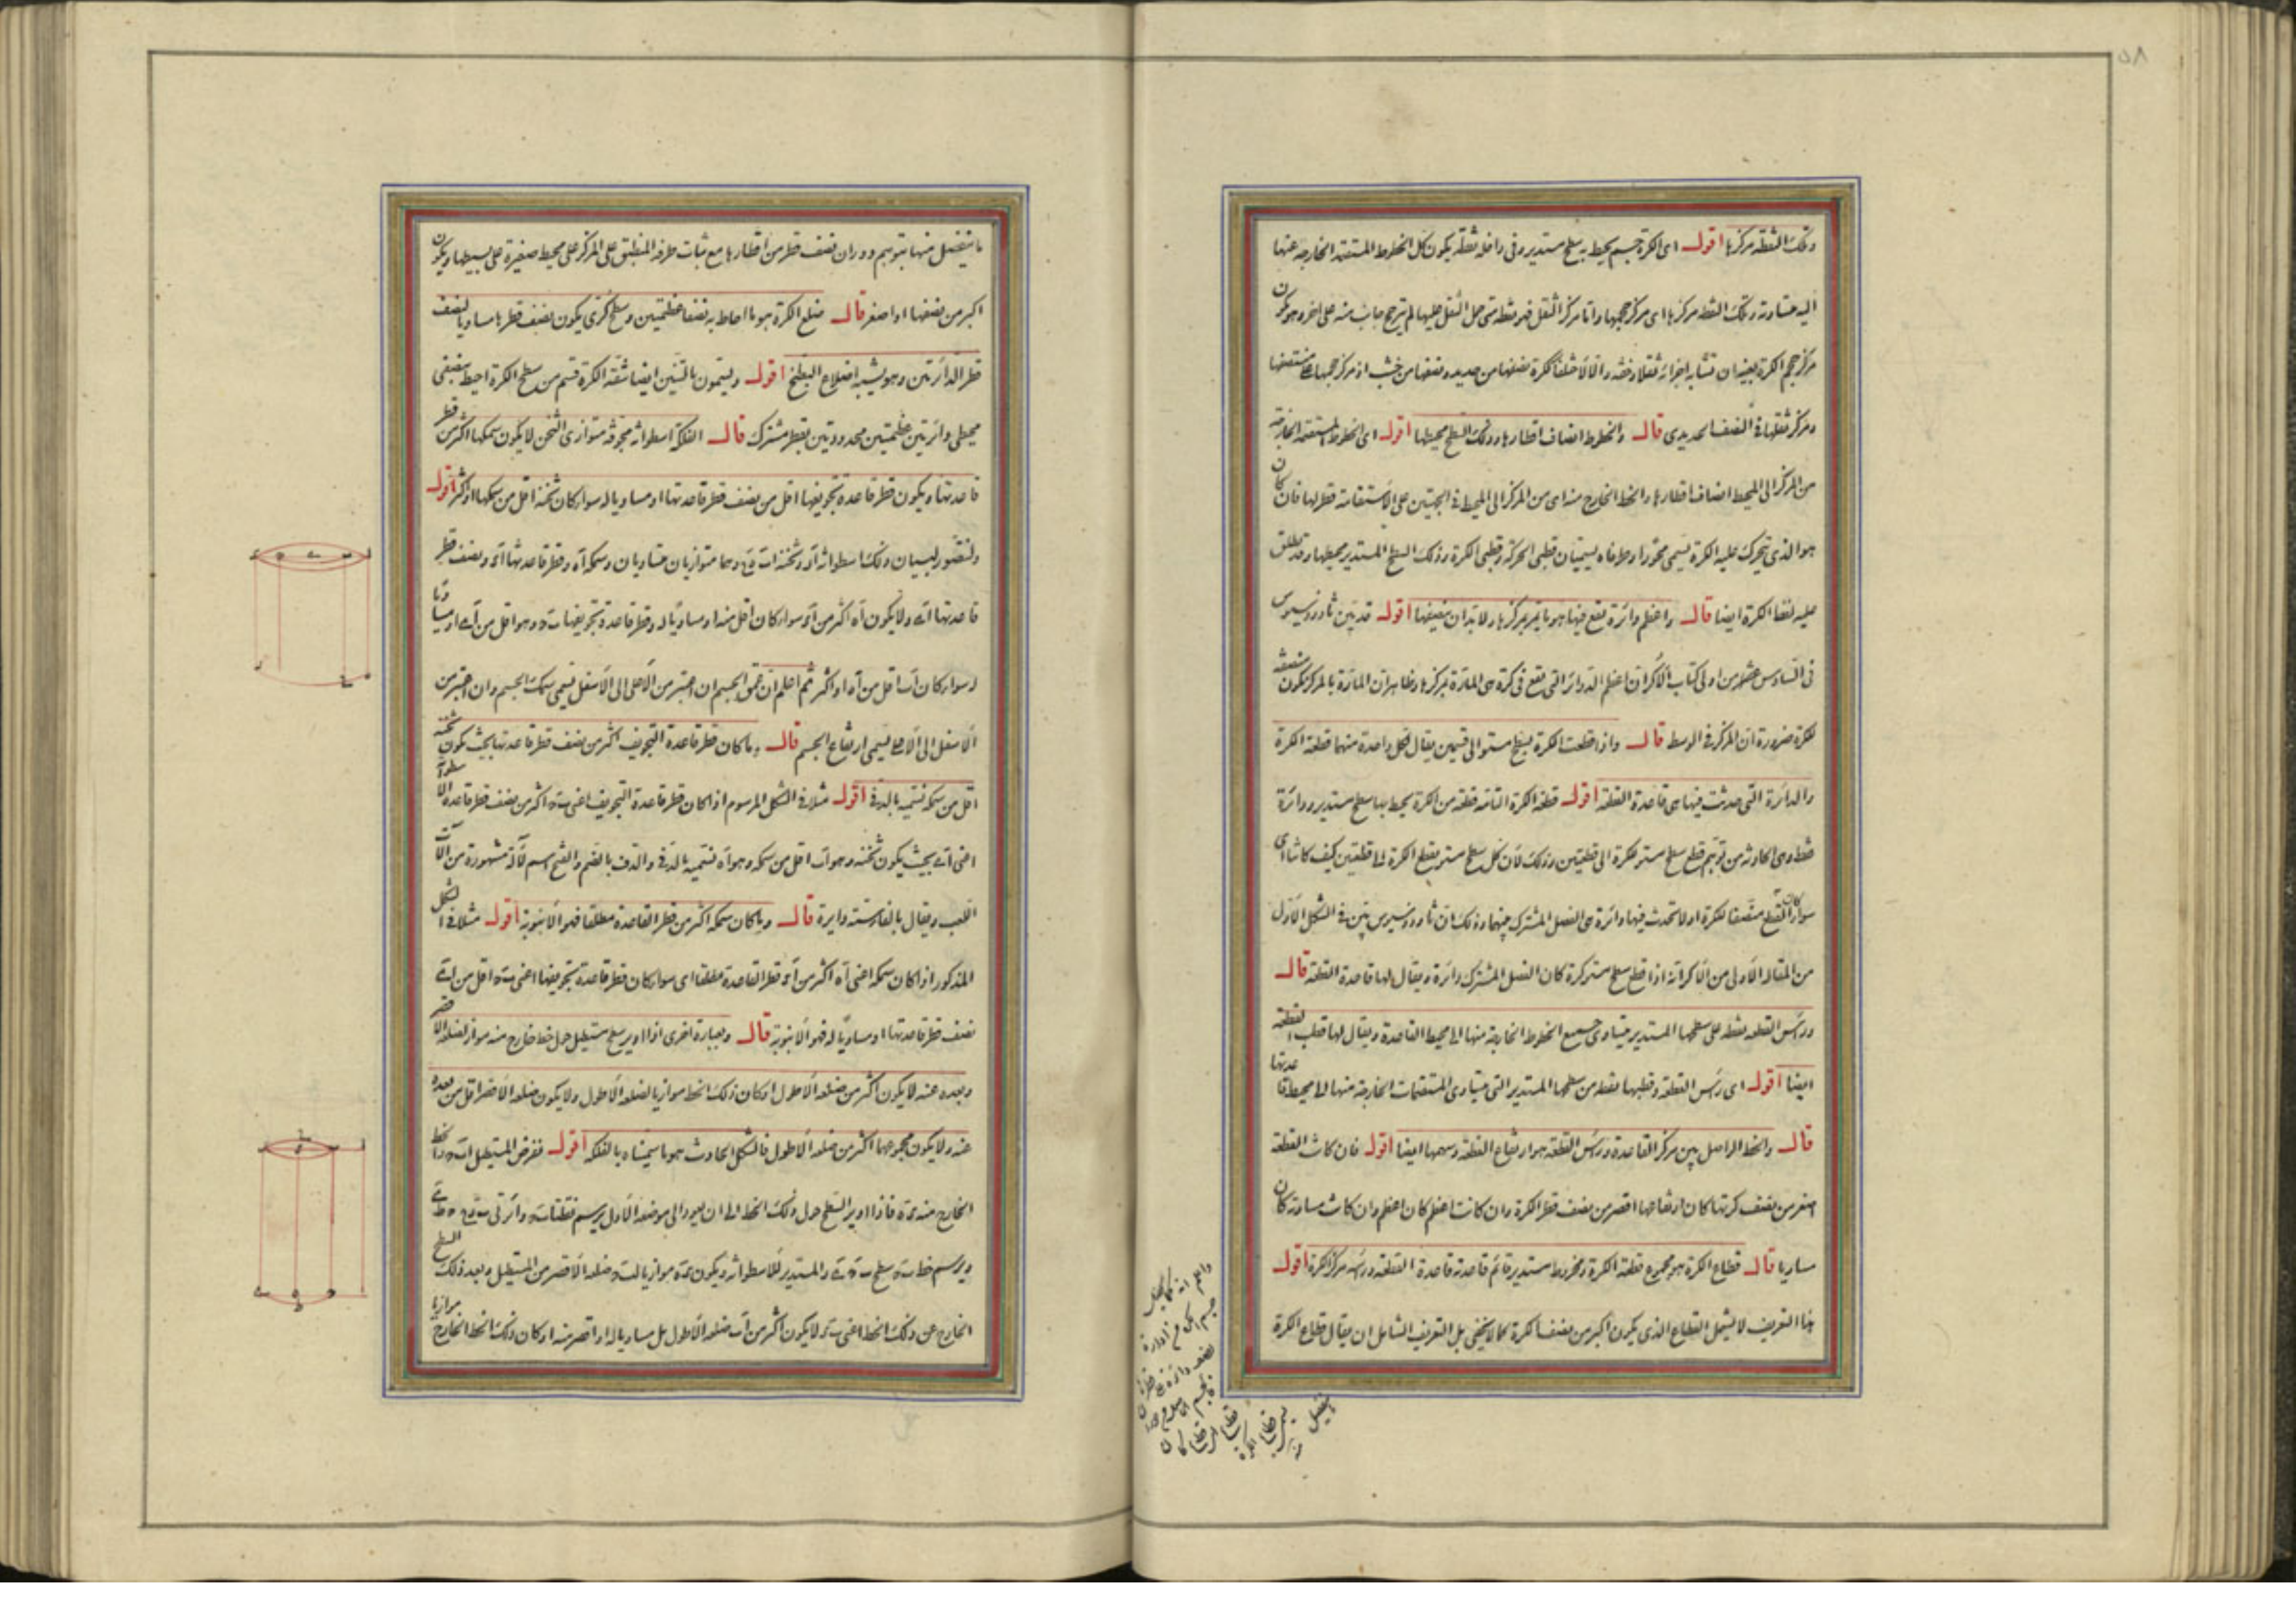 ٥٨
وتلك النقطة مركزها اقول اى الكرة جسم يحيط به سطح مستدير وفى داخله نقطة يكون كل الخطوط المستقيمة الخارجة عنها
اليه متساوية وتلك النقطة مركزها اى مركز حجمها واما مركز الثقل فهو نقطة متى حمل الثقل عليها لم يترجح جانب منه على اخر وهو يكون
مركز حجم الكرة بعينه ان تشابه اجزائه ثقلا وخفة والا لاختلفا ككرة نصفها من حديد ونصفها من خشب اذ مركز حجمها على منتصفها
ومركز ثقلها فى النصف الحديدى قال والخطوط انصاف اقطارها وذلك السطح محيطها اقول اى الخطوط المستقيمة الخارجة
من المركز الى المحيط انصاف اقطارها والخط الخارج منه اى من المركز الى المحيط فى الجهتين على الاستقامة قطر لها فان كان
هو الذى يتحرك عليه الكرة يسمى محورا وطرفاه يسميان قطبى الحركة وقطبى الكرة وذلك السطح المستدير محيطها وقد يطلق
عليه لفظ الكرة ايضا قال واعظم دائرة تقع فيها هو ما يمر بمركزها ولا بد ان ينصفها اقول قد بين ثاوذوسيوس
فى السادس عشر من اولى كتاب الاكر ان اعظم الدوائر التى تقع فى كرة هى المارة بمركزها وظاهر ان المارة بالمركز يكون منصفة
للكرة ضرورة ان المركز فى الوسط قال واذا قطعت الكرة بسطح مستو الى قسمين يقال لكل واحدة منهما قطعة الكرة
والدائرة التى حدثت فيها هى قاعدة القطعة اقول قطعة الكرة التامة قطعة من الكرة يحيط بها سطح مستدير ودائرة
فقط وهى الحادثة من توهم قطع سطح مستو لكرة الى قطعتين وذلك لان كل سطح مستو يقطع الكرة الى قطعتين كيف كانتا اى
سواء كان القطع منصفا للكرة او لا تحدث فيها دائرة هى الفصل المشترك بينهما وذلك ان ثاوذوسيوس بين فى الشكل الاول
من المقالة الاولى من الاكر انه اذا قطع سطح مستو كرة كان الفصل المشترك دائرة ويقال لها قاعدة القطعة قال
ورأس القطعة نقطة على سطحها المستدير يتساوى جميع الخطوط الخارجة منها الى محيط القاعدة ويقال لها قطب القطعة
ايضا اقول اى رأس القطعة وقطبها نقطة من سطحها المستدير التى يتساوى المستقيمات الخارجة منها الى محيط قاعدتها
قال والخط الواصل بين مركز القاعدة ورأس القطعة هو ارتفاع القطعة وسهمها ايضا اقول فان كانت القطعة
اصغر من نصف كرتها كان ارتفاعها اقصر من نصف قطر الكرة وان كانت اعظم كان اعظم وان كانت مساوية كان
مساويا قال قطاع الكرة هو مجموع قطعة الكرة ومخروط مستدير قائم قاعدته قاعدة القطعة ورأسه مركز الكرة اقول
هذا التعريف لا يشمل القطاع الذى يكون اكبر من نصف الكرة كما لا يخفى بل التعريف الشامل ان يقال قطاع الكرة
ما ينفصل منها بتوهم دوران نصف قطر من اقطارها مع ثبات طرفه المنطبق على المركز على محيط صغيرة على بسيطها ويكون
اكبر من نصفها او اصغر قال ضلع الكرة هو ما احاط به نصفا عظيمتين وسطح كرى يكون نصف قطرها مساويا لنصف
قطر الدائرتين وهو يشبه اضلاع البطيخ اقول ويسمون بالتبين ايضا شقة الكرة قسم من سطح الكرة احيط بنصفى
محيطى دائرتين عظيمتين محدودتين بقطر مشترك قال الفلكة اسطوانة مجوفة متوازى الثخن لا يكون سمكها اكثر من قطر
قاعدتها ويكون قطر قاعدة تجويفها اقل من نصف قطر قاعدتها او مساويا له سواء كان ثخنه اقل من سمكها او اكثر اقول
ولنصور لبيان ذلك اسطوانة وثخنته وهما متوازيان متساويان وسمكه اه وقطر قاعدتها ونصف قطر
قاعدتها ولا يكون اه اكثر من سواء كان اقل منه او مساويا له وقطر قاعدة تجويفها وهو اقل من او مساويا
له سواء كان اب اقل من اه او اكثر ثم اعلم ان عمق الجسم ان اعتبر من الاعلى الى الاسفل يسمى سمك الجسم وان اعتبر من
الاسفل الى الاعلى يسمى ارتفاع الجسم قال وما كان قطر قاعدة التجويف اكثر من نصف قطر قاعدتها بحيث يكون ثخنه
اقل من سمكه نسميه بالدف اقول مثلا فى الشكل المرسوم اذا كان قطر قاعدة التجويف اعنى اكثر من نصف قطر قاعدة الاسطوانة
اعنى بحيث يكون ثخنه وهو اب اقل من سمكه وهو اه نسميه بالدف والدف بالضم والفتح اسم لآلة مشهورة من آلات
اللعب ويقال بالفارسية دايره قال وما كان سمكه اكثر من قطر القاعدة مطلقا فهو الانبوبة اقول مثلا فى الشكل
المذكور اذا كان سمكه اعنى اه اكثر من قطر القاعدة مطلقا اى سواء كان قطر قاعدة تجويفها اعنى اقل من
نصف قطر قاعدتها او مساويا له فهو الانبوبة قال وبعبارة اخرى اذا ادير سطح مستطيل حول خط خارج منه مواز لضلعه الاقصر
وبعده عنه لا يكون اكثر من ضلعه الاطول او كان ذلك الخط موازيا لضلعه الاطول ولا يكون ضلعه الاقصر اقل من بعده
عنه ولا يكون مجموعهما اكثر من ضلعه الاطول فالشكل الحادث هو ما سميناه بالفلكة اقول نفرض المستطيل والخط
الخارج منه فاذا ادير السطح حول ذلك الخط الى ان يعود الى موضعه الاول يرسم نقطتا دائرتى
ويرسم خط سطح والمستدير للاسطوانة ويكون موازيا ضلعه الاقصر من المستطيل وبعد ذلك السطح
الخارج عن ذلك الخط اعنى لا يكون اكثر من اب ضلعه الاطول بل مساويا له او اقصر منه او كان ذلك الخط الخارج موازيا